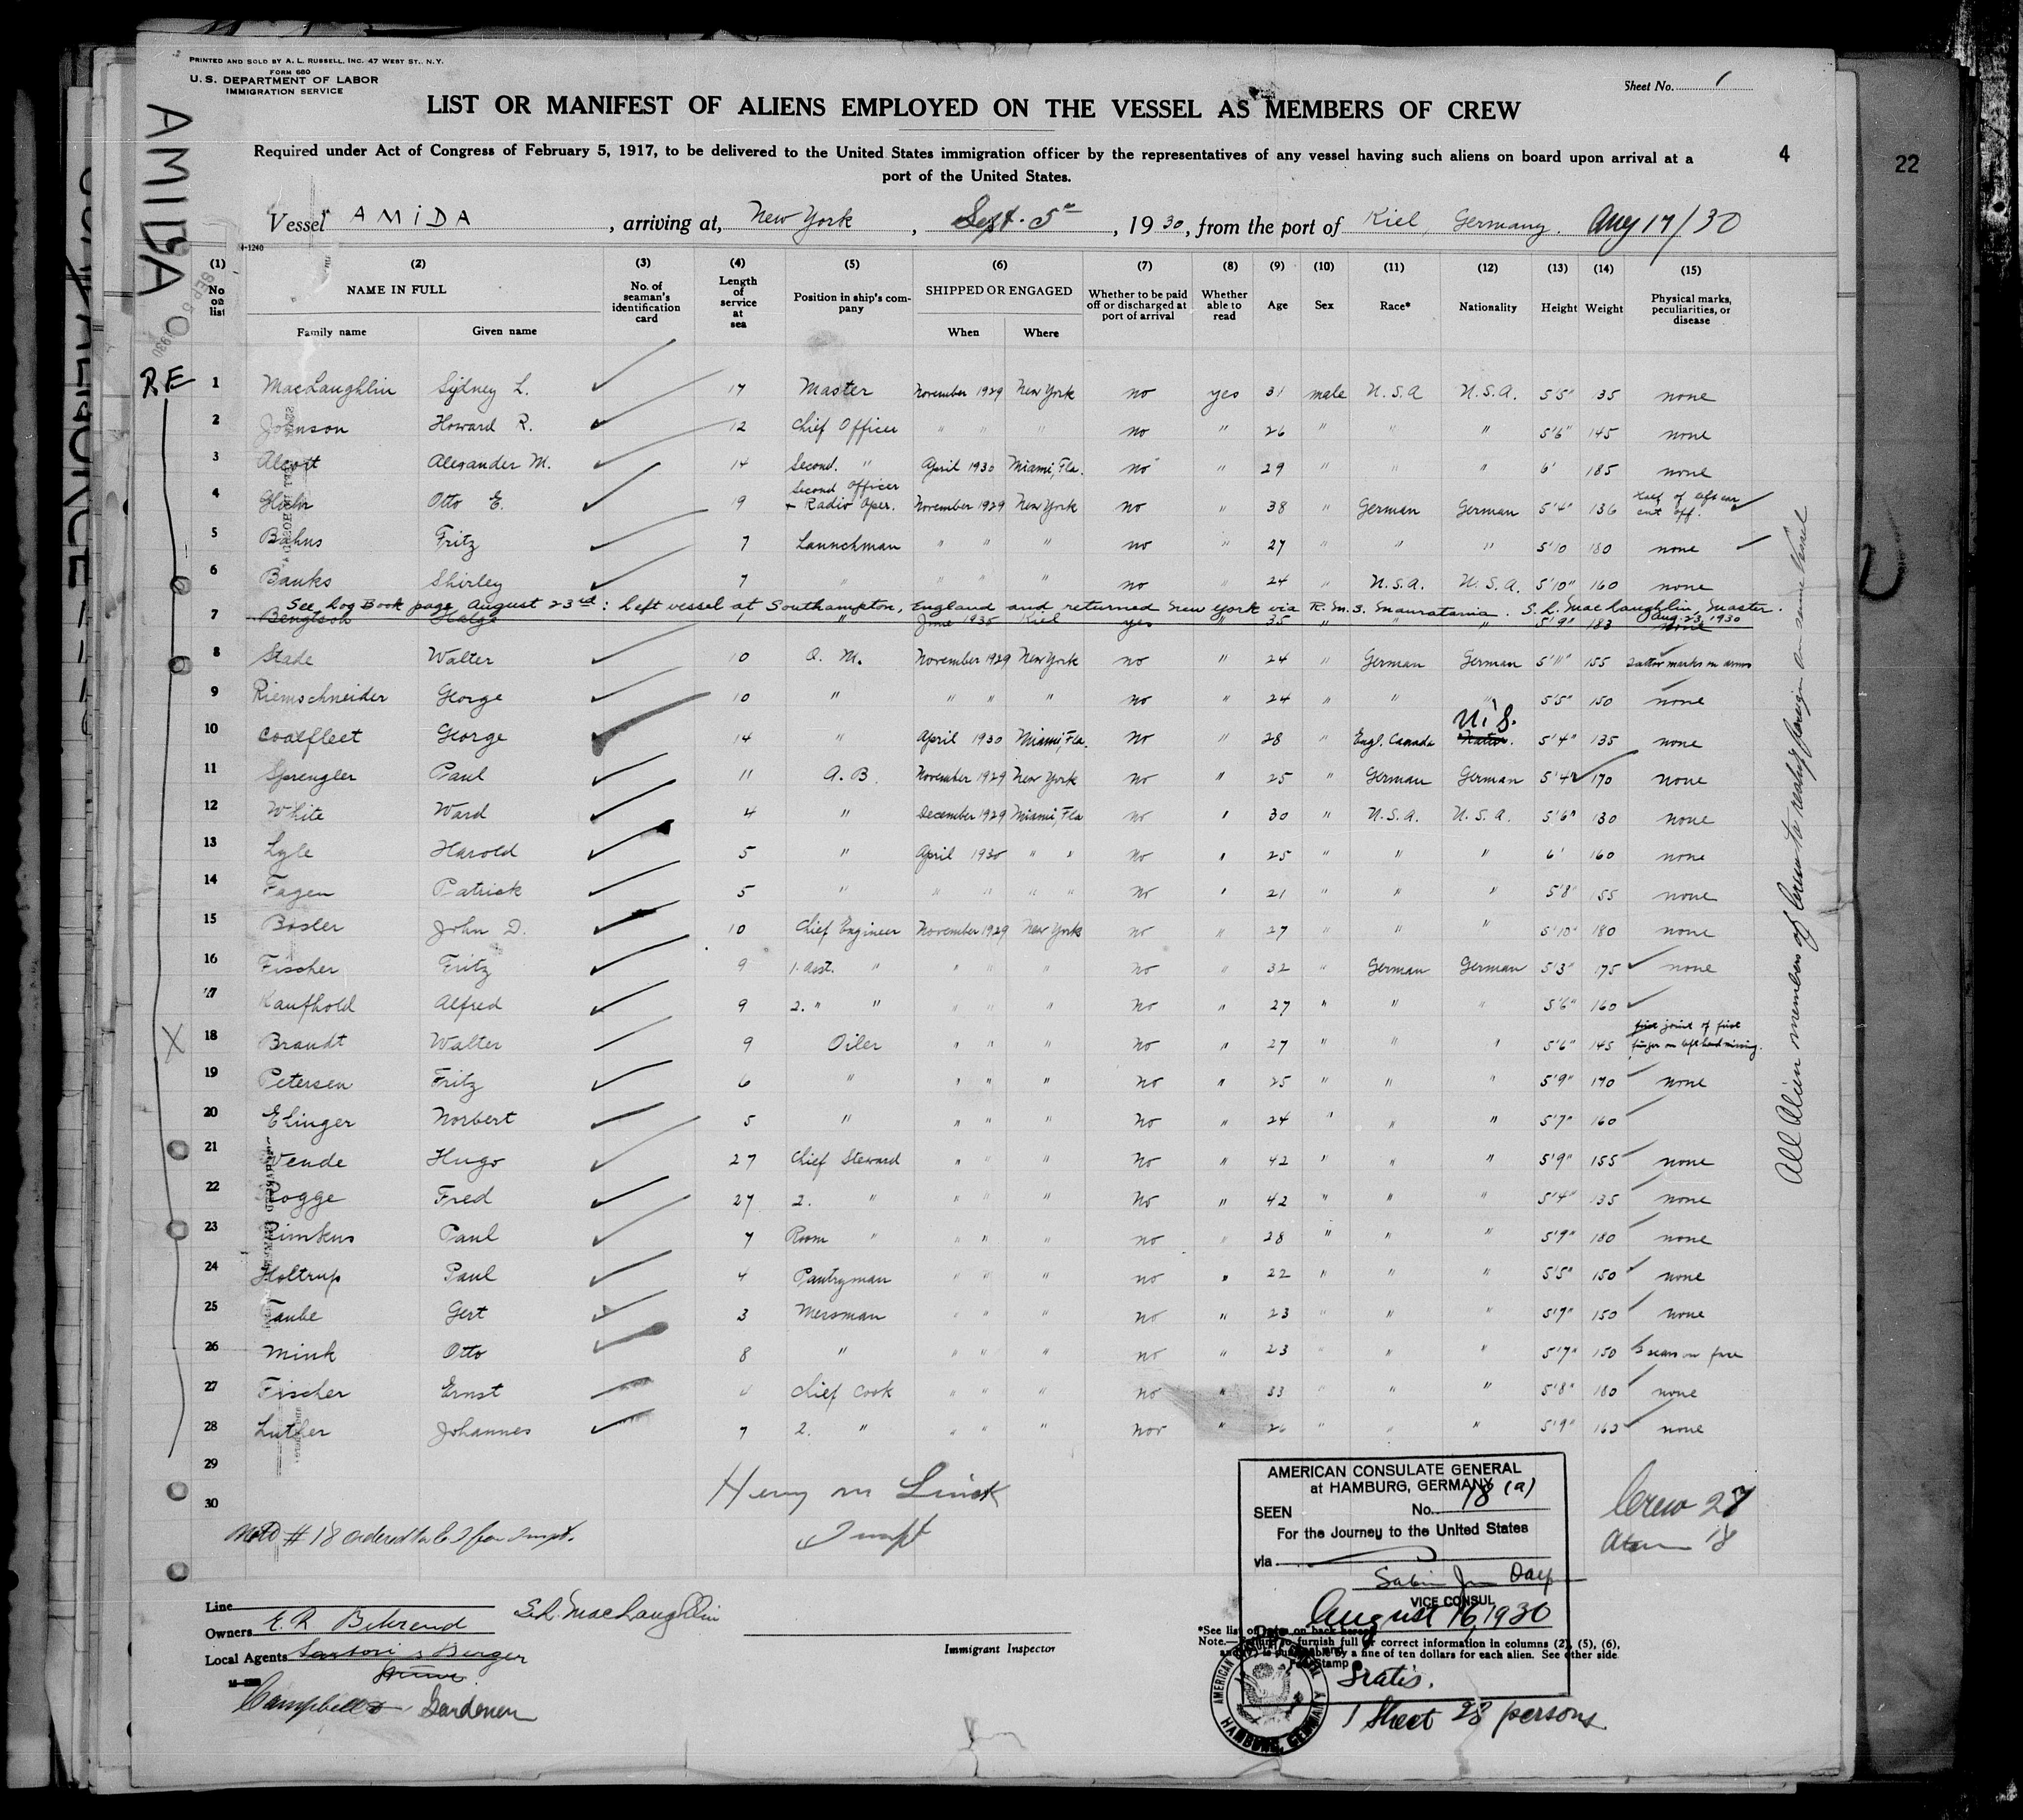 PRINTED AND SOLD BY A. L. RUSSELL, INC. 47 WEST ST., N.Y.
FORM 680
U. S. DEPARTMENT OF LABOR
IMMIGRATION SERVICE
Sheet No. 1
LIST OR MANIFEST OF ALIENS EMPLOYED ON THE VESSEL AS MEMBERS OF CREW
Required under Act of Congress of February 5, 1917, to be delivered to the United States immigration officer by the representatives of any vessel having such aliens on board upon arrival at a
port of the United States.
4
22
AMIDA
Vessel AMIDA, arriving at, New York, Sept. 5th, 1930, from the port of Kiel, Germany. Aug 17/30
4-1240
(1) (2) (3) (4) (5) (6) (7) (8) (9) (10) (11) (12) (13) (14) (15)
No. on list NAME IN FULL No. of seaman's identification card Length of service at sea Position in ship's company SHIPPED OR ENGAGED Whether to be paid off or discharged at port of arrival Whether able to read Age Sex Race* Nationality Height Weight Physical marks, peculiarities, or disease
Family name Given name When Where
RE
1 MacLaughlin Sydney L. 17 Master November 1929 New York no yes 31 male U.S.A U.S.A. 5'5" 135 none
2 Johnson Howard R. 12 Chief Officer " " " no " 26 " " " 5'6" 145 none
3 Alcott Alexander M. 14 Second. " April 1930 Miami, Fla. no " 29 " " " 6' 185 none
4 Hoehn Otto E. 9 Second Officer + Radio Oper. November 1929 New York no " 38 " German German 5'4" 136 Half of left ear cut off.
5 Bahns Fritz 7 Launchman " " " no " 27 " " " 5'10 180 none
6 Banks Shirley 7 " " " " no " 24 " U.S.A. U.S.A. 5'10" 160 none
See Log Book page August 23rd: Left vessel at Southampton, England and returned New York via R.M.S. Mauratania. S.L. MacLaughlin, Master. Aug. 23, 1930
7 Bengtson Helge 1 " June 1930 Kiel yes " 35 " " " 5'9" 183 none
8 Stade Walter 10 Q. M. November 1929 New York no " 24 " German German 5'11" 155 Tattoo marks on arms
9 Riemschneider George 10 " " " " no " 24 " " " 5'5" 150 none
U.S.
10 Coalfleet George 14 " April 1930 Miami, Fla. no " 28 " Engl. Canada 5'4" 135 none
11 Sprengler Paul 11 A. B. November 1929 New York no " 25 " German German 5'4" 170 none
12 White Ward 4 " December 1929 Miami, Fla no " 30 " U.S.A. U.S.A. 5'6" 130 none
13 Lyle Harold 5 " April 1930 " " no " 25 " " " 6' 160 none
14 Fagen Patrick 5 " " " " " no " 21 " " " 5'8" 155 none
15 Bosler John D. 10 Chief Engineer November 1929 New York no " 27 " " " 5'10" 180 none
16 Fischer Fritz 9 1. Asst. " " " " no " 32 " German German 5'3" 175 none
17 Kaufhold Alfred 9 2. " " " " " no " 27 " " " 5'6" 160
X 18 Brandt Walter 9 Oiler " " " no " 27 " " " 5'6" 145 first joint of first finger on left hand missing.
19 Petersen Fritz 6 " " " " no " 25 " " " 5'9" 170 none
20 Elinger Norbert 5 " " " " no " 24 " " " 5'7" 160
21 Wende Hugo 27 Chief Steward " " " no " 42 " " " 5'9" 155 none
22 Rogge Fred 27 2. " " " " no " 42 " " " 5'4" 135 none
23 Rimkus Paul 7 Room " " " " no " 28 " " " 5'9" 180 none
24 Holtrup Paul 4 Pantryman " " " no " 22 " " " 5'5" 150 none
25 Taube Gert 3 Messman " " " no " 23 " " " 5'7" 150 none
26 Mink Otto 8 " " " " no " 23 " " " 5'7" 150 scars on face
27 Fischer Ernst Chief Cook " " " no " 33 " " " 5'8" 180 none
28 Luther Johannes 7 2. " " " " no " 26 " " " 5'9" 163 none
29
30
All Alien members of Crew to reship foreign on same Vessel
Henry M Linck
Inspt
Note #18 ordered to E I for Inspt.
Crew 27
18
AMERICAN CONSULATE GENERAL
at HAMBURG, GERMANY
SEEN No. 18 (a)
For the Journey to the United States
via
VICE CONSUL
August 16, 1930
Line
Owners E. R. Behrend
S.L. MacLaughlin
Local Agents Santoni & Berger
Campbell & Gardener
Immigrant Inspector
*See list of races on back hereof.
Note.—Failure to furnish full or correct information in columns (2), (5), (6),
and (7) is punishable by a fine of ten dollars for each alien. See other side
Fee Stamp
Gratis.
AMERICAN CONSULATE GENERAL HAMBURG, GERMANY
1 Sheet 28 persons.